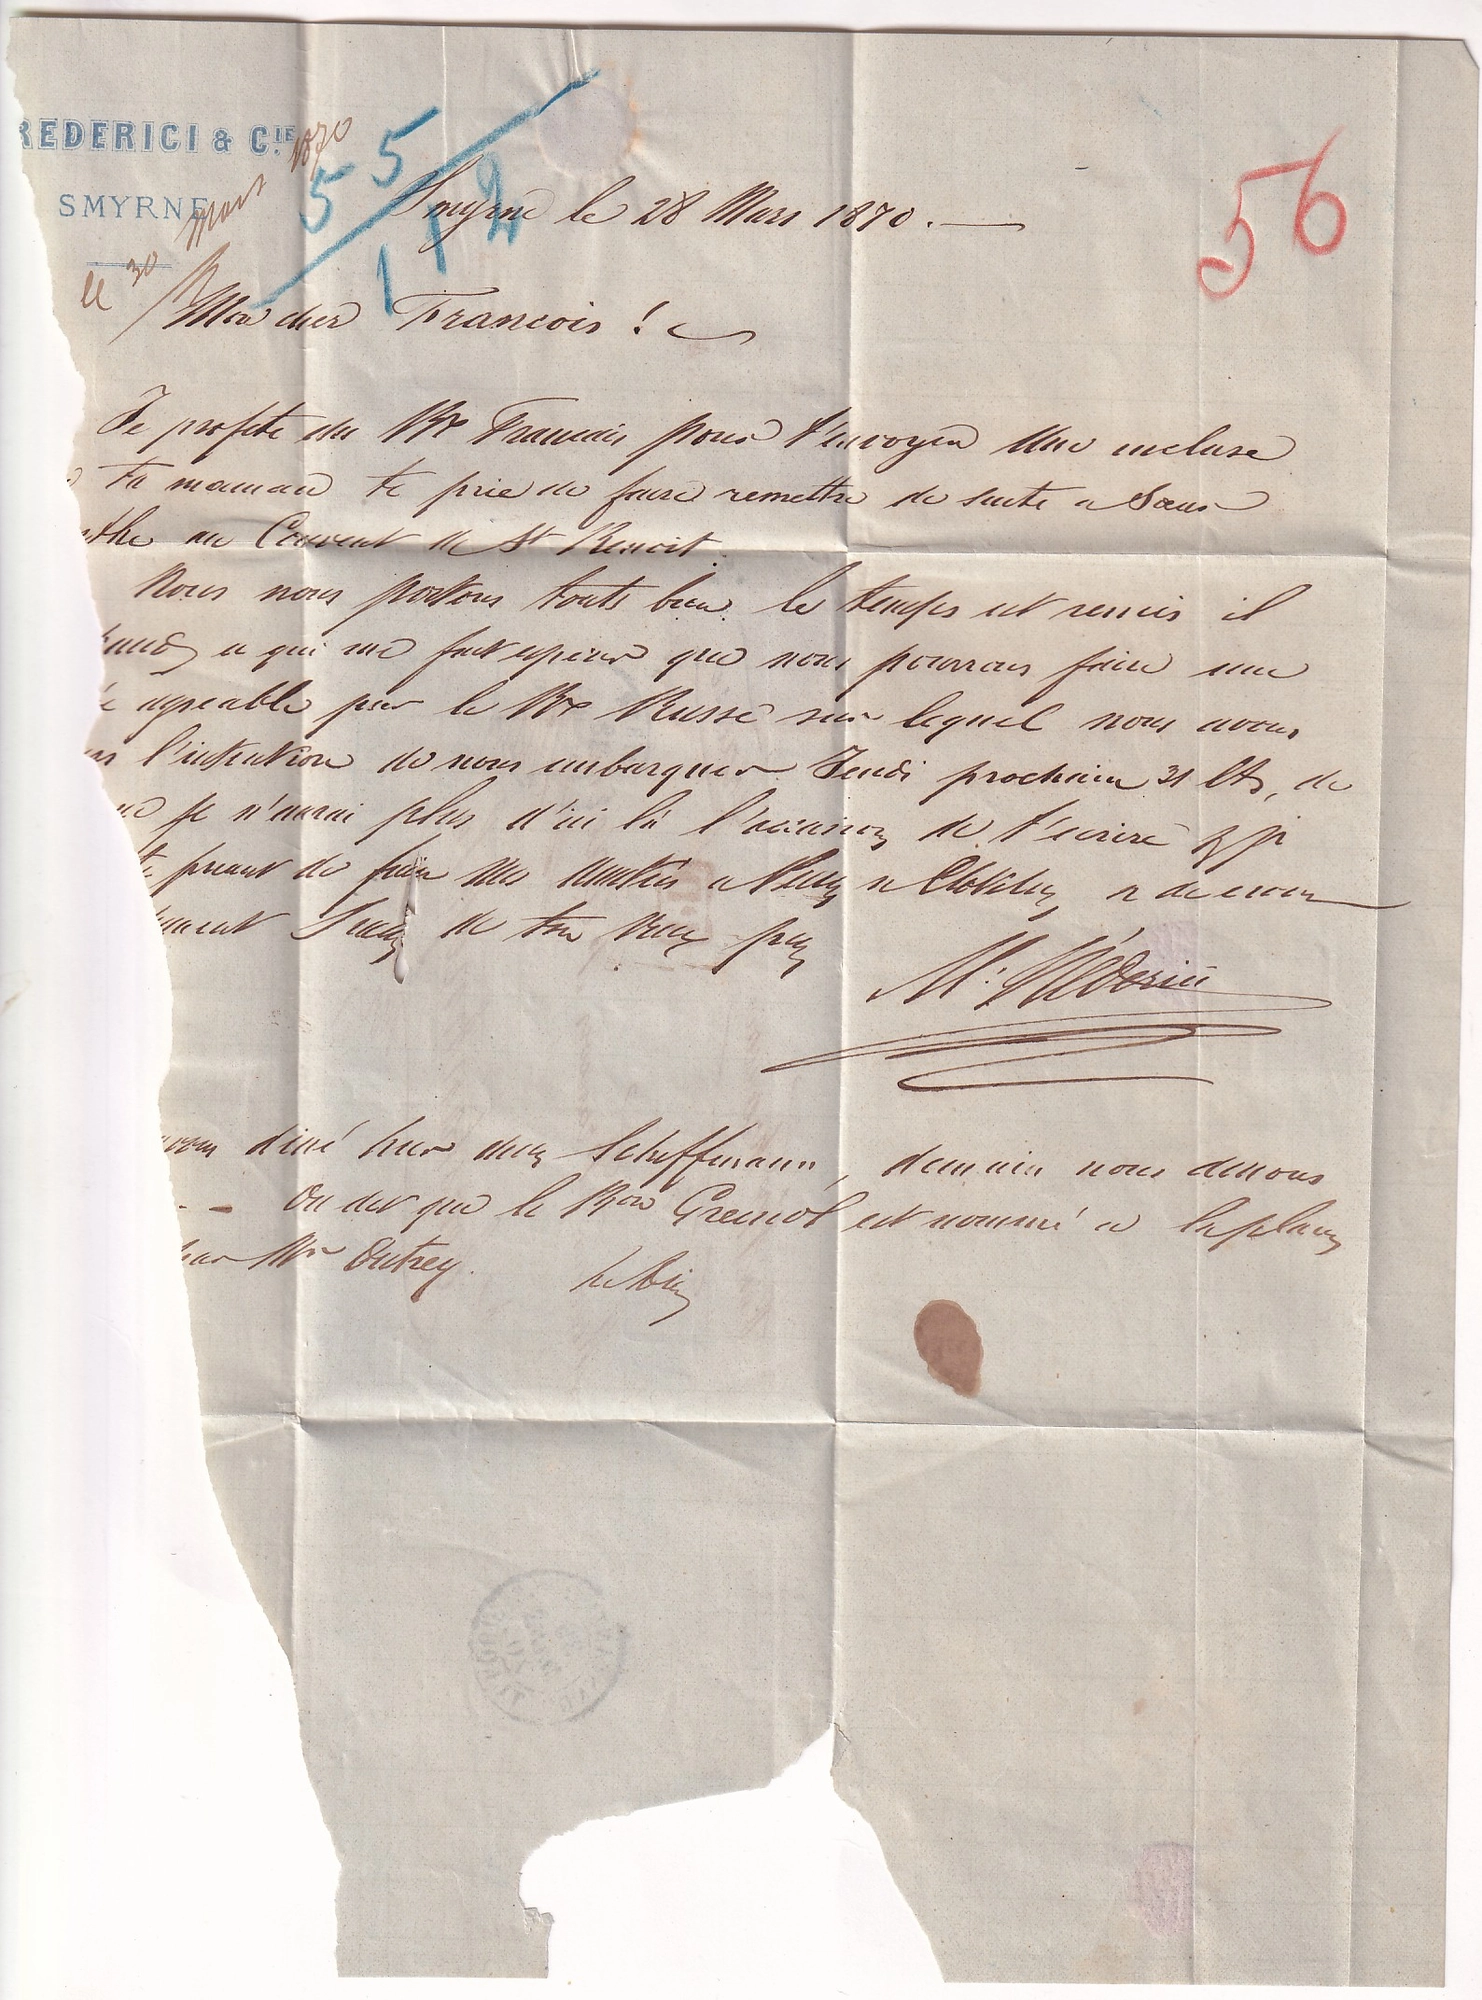 REDERICI & CIE
SMYRNE
le 30 Mars 1870
55
112
56
Smyrne le 28 Mars 1870.
Mon cher Francois !
Je profite du Bt Francais pour t'envoyer une incluse
ta maman te prie de faire remettre de suite a Soeur
the au Couvent de St Benoit.
Nous nous portons touts bien. le temps est remis il
a qui me fait esperer que nous pourrons faire une
agreable par le Bt Russe sur lequel nous avons
l'intention de nous embarquer Jeudi prochain 31 Ct, de
je n'aurai plus d'ici là l'occasion de t'ecrire
te priant de faire mes amitiés a
de ton
M. Féderici
avons diné hier chez Scheffmann, demain nous dinons
On dit que le Bon Gremiol est nommé a la place
par Mr Outrey.